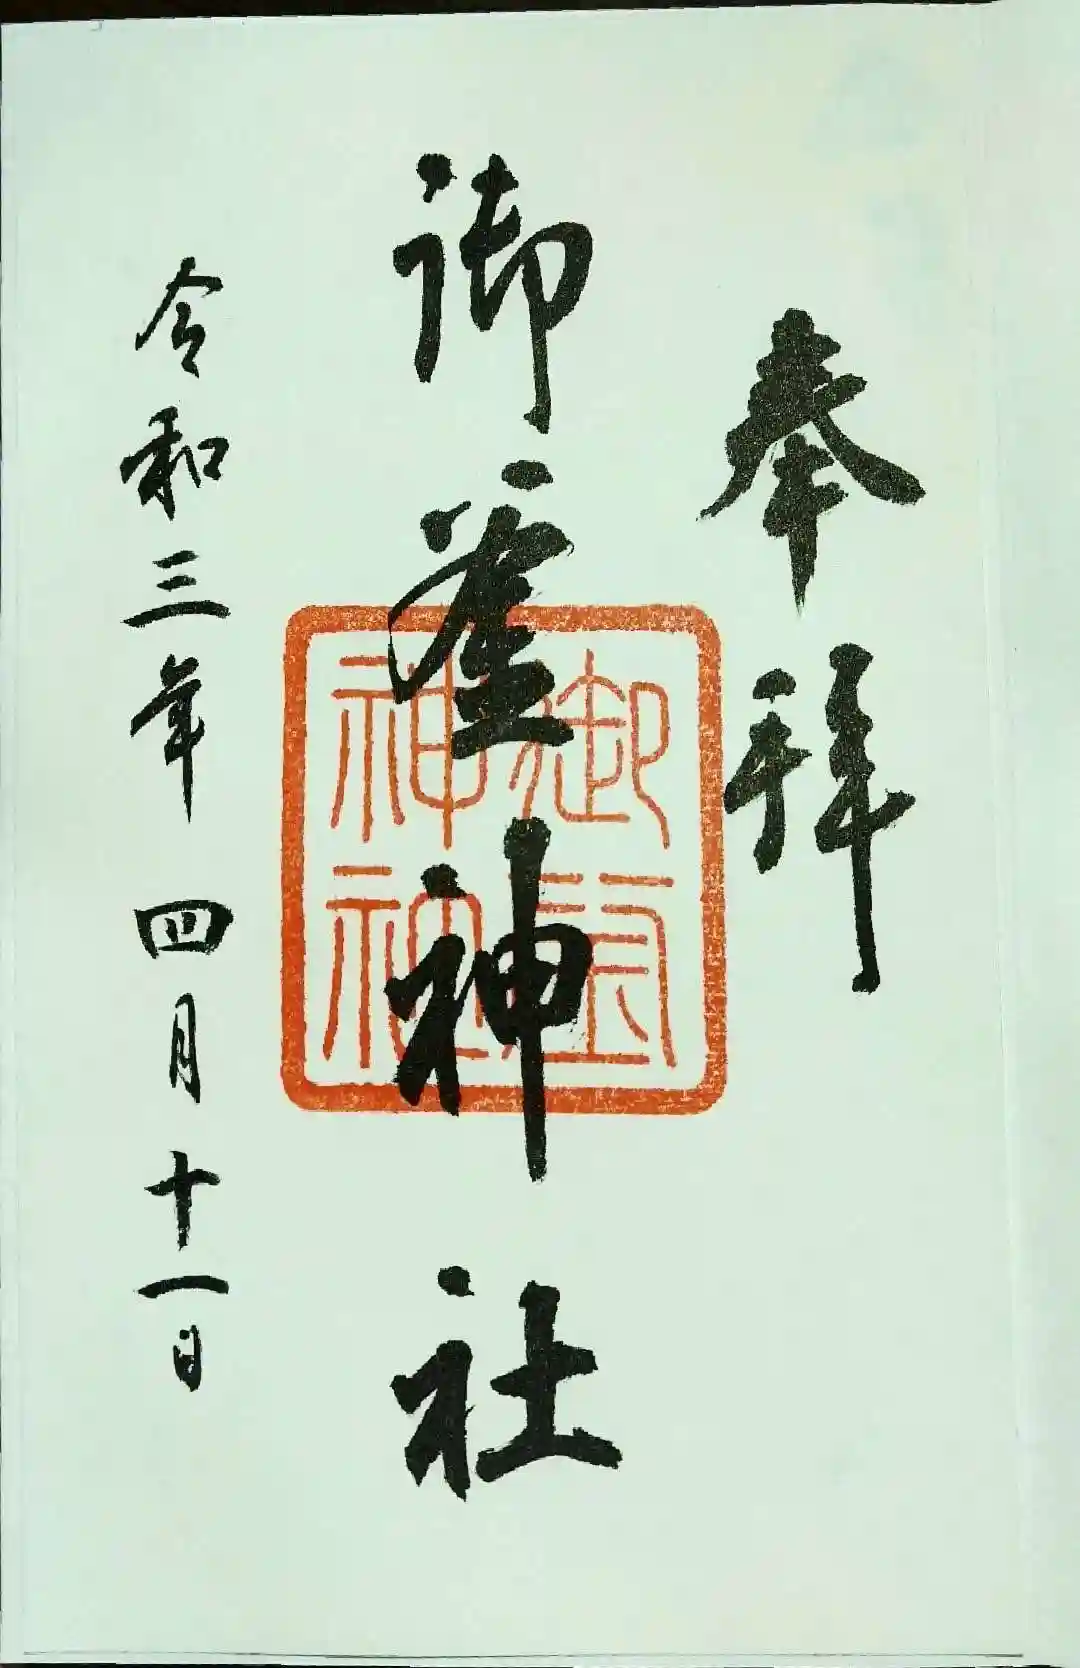 奉拝
御神社
令和三年 四月十一日
御
神社